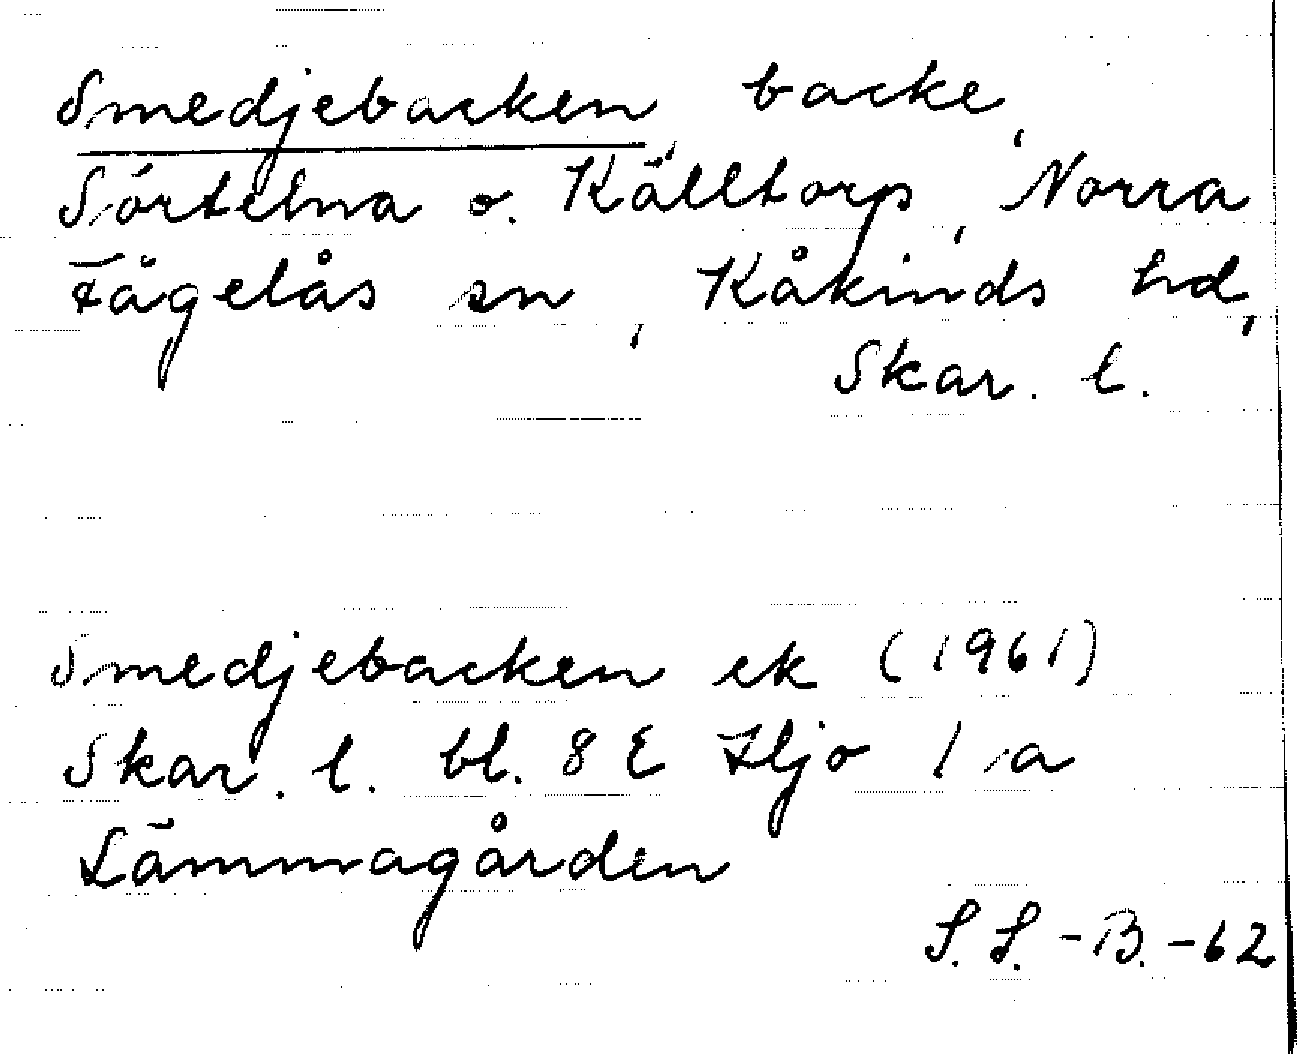 Smedjebacken backe,
Sörtelna o. Källtorp, Norra
Fågelås sn, Kåkinds hd,
Skar. l.
Smedjebacken ek (1961)
Skar. l. bl. 8 E Hjo 1 a
Lämmagården
S. S.-B.-62